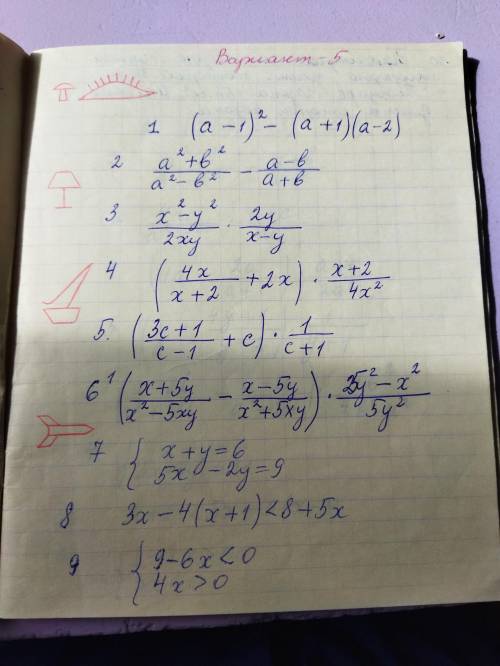 Вариант 5
1 (a-1)² - (a+1)(a-2)
2 (a²+b²)/(a²-b²) - (a-b)/(a+b)
3 (x²-y²)/(2xy) · (2y)/(x-y)
4 (4x/(x+2) + 2x) · (x+2)/(4x²)
5. ((3c+1)/(c-1) + c) · 1/(c+1)
6¹ ((x+5y)/(x²-5xy) - (x-5y)/(x²+5xy)) · (25y²-x²)/(5y²)
7 { x+y=6
5x-2y=9
8 3x-4(x+1)<8+5x
9 { 9-6x<0
4x>0